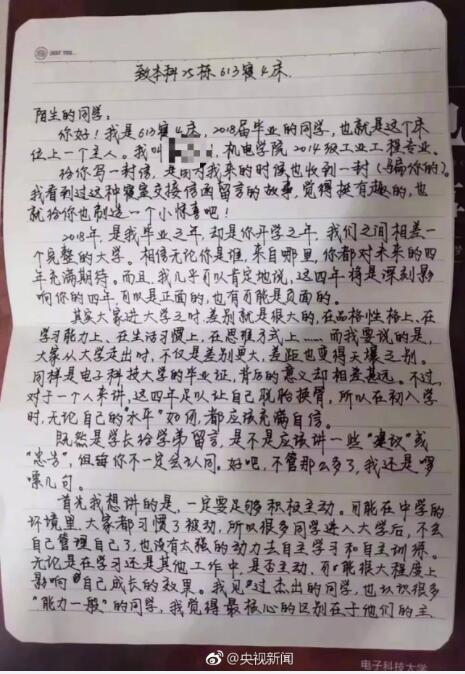 JUST YOU...
致本科25栋613寝4床.
陌生的同学:
你好!我是613寝4床,2018届毕业的同学,也就是这个床
位上一个主人。我叫 ,机电学院2014级工业工程专业。
给你写一封信,是因为我来的时候也收到一封(骗你的)。
我看到过这种寝室交接信函留言的故事,觉得挺有趣的,也
就给你也制造一个小惊喜吧!
2018年,是我毕业之年,却是你开学之年,我们之间相差一
个完整的大学。相信无论你是谁,来自哪里,你都对未来的四
年充满期待。而且,我几乎可以肯定地说,这四年将是深刻影
响你的四年,可以是正面的,也有可能是负面的。
其实大家进大学之时,差别就是很大的,在品格性格上、在
学习能力上、在生活习惯上,在思维方式上……而我要说的是,
大家从大学走出时,不仅是差别更大,差距也变得天壤之别。
同样是电子科技大学的毕业证,背后的意义却相差甚远。不过,
对于一个人来讲,这四年足以让自己脱胎换骨,所以在初入学
时,无论自己的“水平”如何,都应该充满自信。
既然是学长给学弟留言,是不是应该讲一些“建议”或
“忠告”,但每你不一定会认同。好吧,不管那么多了,我还是啰
嗦几句。
首先我想讲的是,一定要足够积极主动。可能在中学的
环境里,大家都习惯了被动,所以很多同学进入大学后,不会
自己管理自己了,也没有太强的动力去自主学习和自主训练。
无论是在学习还是其他工作中,是否主动,可能很大程度上
影响自己成长的效果。我见过杰出的同学,也认识很多
“能力一般”的同学,我觉得最核心的区别在于他们的主
@央视新闻
电子科技大学